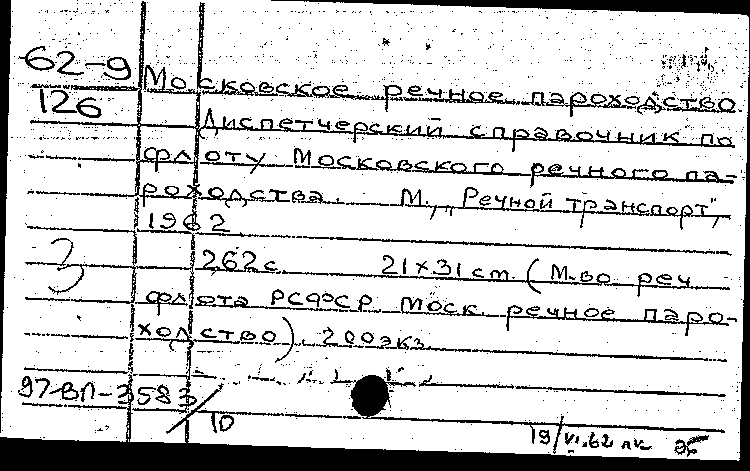 62-9 Московское речное пароходство.
126 Диспетчерский справочник по
флоту Московского речного па-
роходства. М., „Речной транспорт",
1962.
3 262 с. 21×31 cm. (М-во реч.
флота РСФСР. Моск. речное паро-
ходство). 200 экз.
97-ВЛ-3583/10
19/VI.62